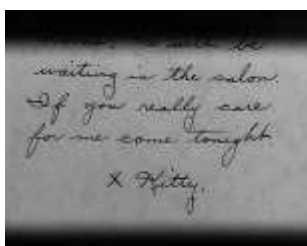 will be
waiting in the salon.
If you really care
for me come tonight.
X Kitty.